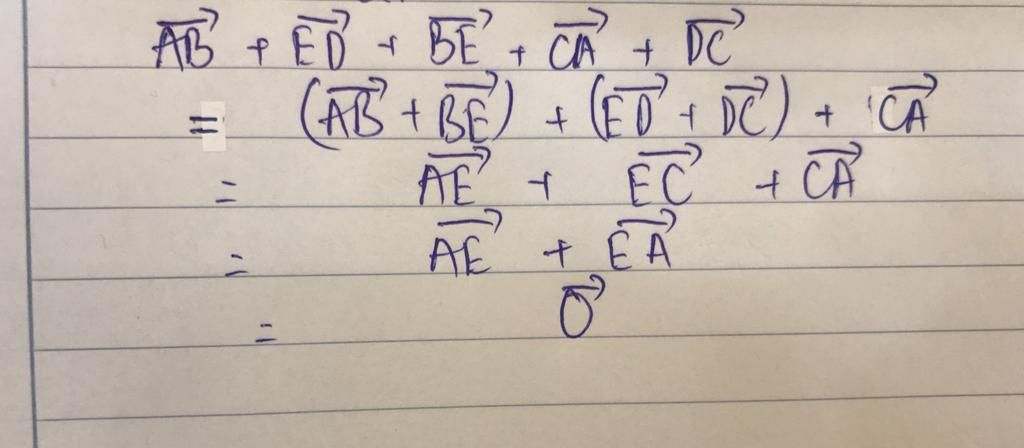 $\overrightarrow{AB} + \overrightarrow{ED} + \overrightarrow{BE} + \overrightarrow{CA} + \overrightarrow{DC}$
$= (\overrightarrow{AB} + \overrightarrow{BE}) + (\overrightarrow{ED} + \overrightarrow{DC}) + \overrightarrow{CA}$
$= \overrightarrow{AE} + \overrightarrow{EC} + \overrightarrow{CA}$
$= \overrightarrow{AE} + \overrightarrow{EA}$
$= \overrightarrow{0}$